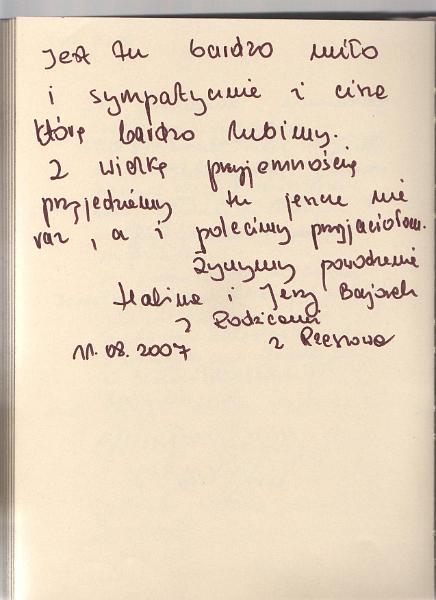 Jest tu bardzo miło
i sympatycznie i cisze
którę bardzo lubimy.
Z wielkę przyjemnościę
przyjedziemy tu jeszcze nie
raz, a i polecimy przyjaciołom.
Życzymy powodzenia
Halina i Jerzy
z Rodzicami
11.08.2007 z Rzeszowa